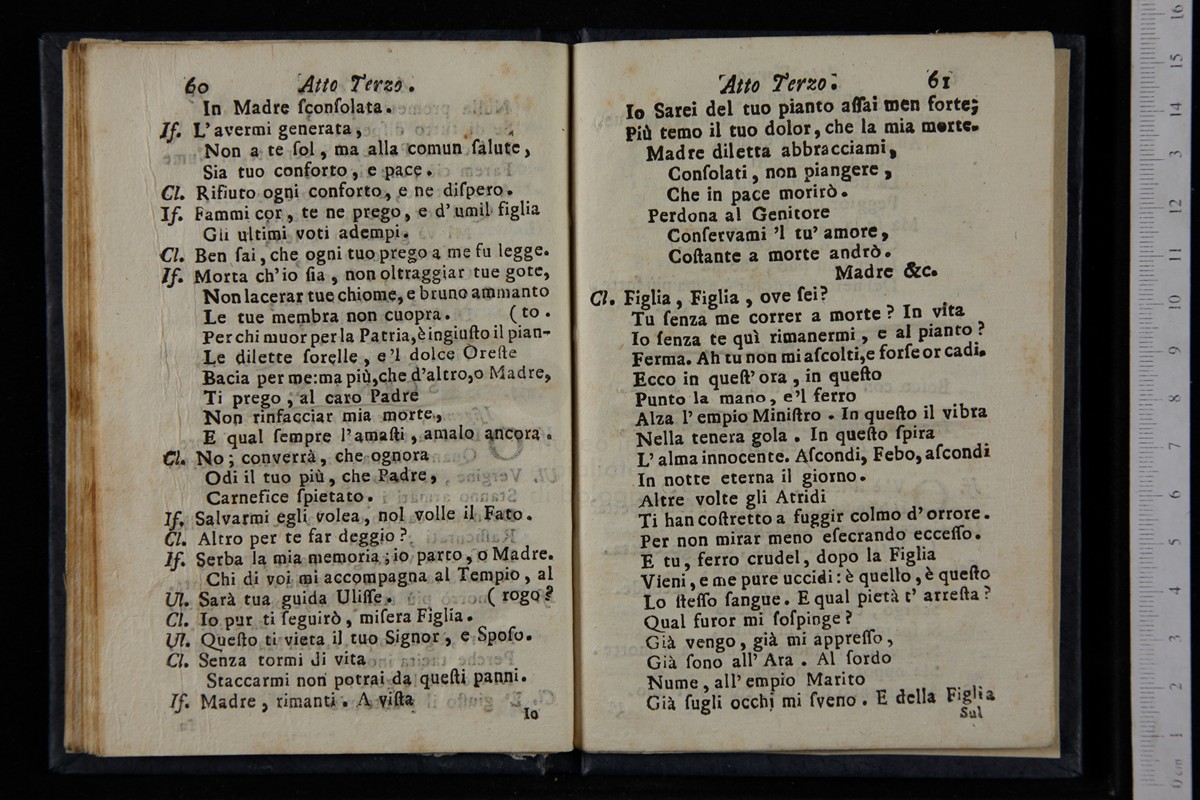 60 Atto Terzo.
In Madre ſconſolata.
If. L'avermi generata,
Non a te ſol, ma alla comun ſalute,
Sia tuo conforto, e pace.
Cl. Rifiuto ogni conforto, e ne diſpero.
If. Fammi cor, te ne prego, e d'umil figlia
Gli ultimi voti adempi.
Cl. Ben ſai, che ogni tuo prego a me fu legge.
If. Morta ch'io ſia, non oltraggiar tue gote,
Non lacerar tue chiome, e bruno ammanto
Le tue membra non cuopra. (to.
Per chi muor per la Patria, è ingiuſto il pian-
Le dilette ſorelle, e'l dolce Oreſte
Bacia per me: ma più, che d'altro, o Madre,
Ti prego, al caro Padre
Non rinfacciar mia morte,
E qual ſempre l'amaſti, amalo ancora.
Cl. No; converrà, che ognora
Odi il tuo più, che Padre,
Carnefice ſpietato.
If. Salvarmi egli volea, nol volle il Fato.
Cl. Altro per te far deggio?
If. Serba la mia memoria; io parto, o Madre.
Chi di voi mi accompagna al Tempio, al
Ul. Sarà tua guida Uliſſe. (rogo?
Cl. Io pur ti ſeguirò, miſera Figlia.
Ul. Queſto ti vieta il tuo Signor, e Spoſo.
Cl. Senza tormi di vita
Staccarmi non potrai da queſti panni.
If. Madre, rimanti. A viſta
Io
Atto Terzo. 61
Io Sarei del tuo pianto aſſai men forte;
Più temo il tuo dolor, che la mia morte.
Madre diletta abbracciami,
Conſolati, non piangere,
Che in pace morirò.
Perdona al Genitore
Conſervami 'l tu' amore,
Coſtante a morte andrò.
Madre &c.
Cl. Figlia, Figlia, ove ſei?
Tu ſenza me correr a morte? In vita
Io ſenza te quì rimanermi, e al pianto?
Ferma. Ah tu non mi aſcolti, e forſe or cadi.
Ecco in queſt'ora, in queſto
Punto la mano, e'l ferro
Alza l'empio Miniſtro. In queſto il vibra
Nella tenera gola. In queſto ſpira
L'alma innocente. Aſcondi, Febo, aſcondi
In notte eterna il giorno.
Altre volte gli Atridi
Ti han coſtretto a fuggir colmo d'orrore.
Per non mirar meno eſecrando ecceſſo.
E tu, ferro crudel, dopo la Figlia
Vieni, e me pure uccidi: è quello, è queſto
Lo ſteſſo ſangue. E qual pietà t'arreſta?
Qual furor mi ſoſpinge?
Già vengo, già mi appreſſo,
Già ſono all'Ara. Al ſordo
Nume, all'empio Marito
Già ſugli occhj mi ſveno. E della Figlia
Sul